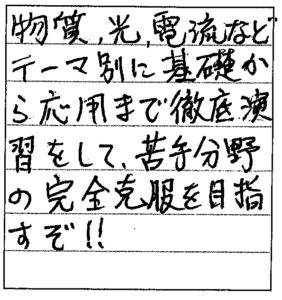 物質,光,電流など
テーマ別に基礎か
ら応用まで徹底演
習をして、苦手分野
の完全克服を目指
すぞ!!